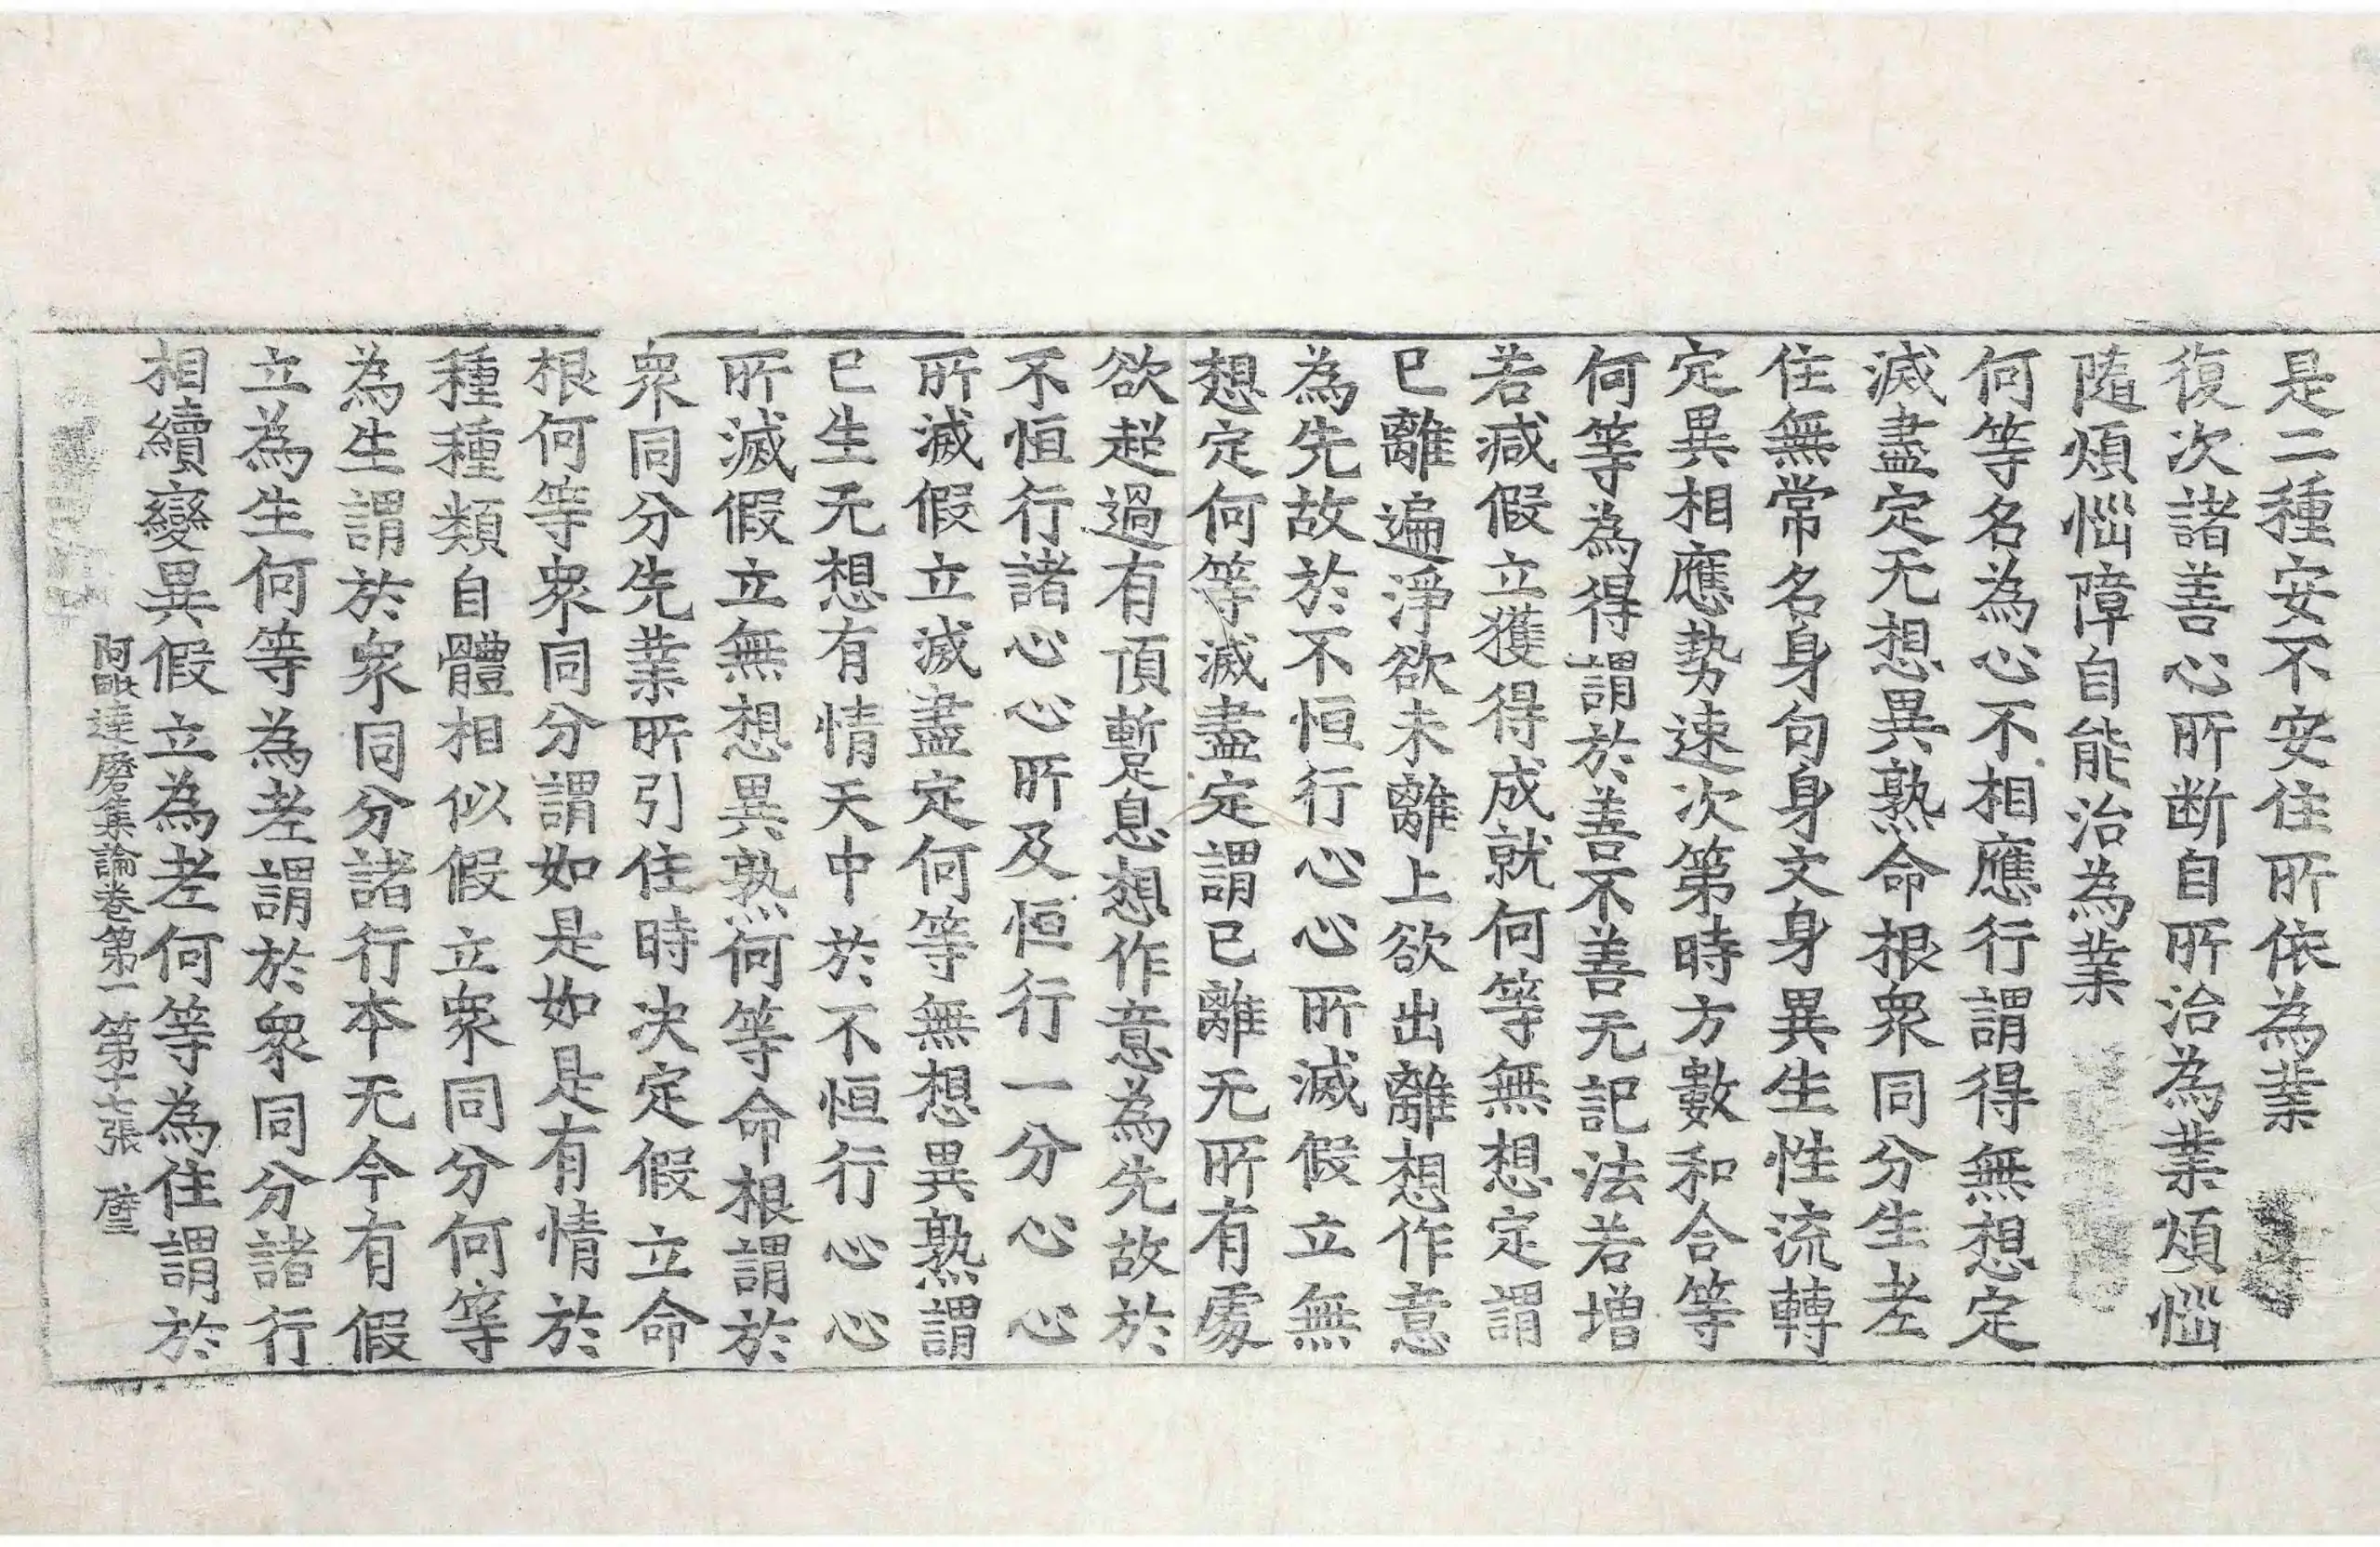 是二種安不安住所依為業
復次諸善心所斷自所治為業煩惱
隨煩惱障自能治為業
何等名為心不相應行謂得無想定
滅盡定无想異熟命根衆同分生老
住無常名身句身文身異生性流轉
定異相應勢速次第時方數和合等
何等為得謂於善不善无記法若增
若減假立獲得成就何等無想定謂
已離遍淨欲未離上欲出離想作意
為先故於不恒行心心所滅假立無
想定何等滅盡定謂已離无所有處
欲超過有頂暫息想作意為先故於
不恒行諸心心所及恒行一分心心
所滅假立滅盡定何等無想異熟謂
已生无想有情天中於不恒行心心
所滅假立無想異熟何等命根謂於
衆同分先業所引住時決定假立命
根何等衆同分謂如是如是有情於
種種類自體相似假立衆同分何等
為生謂於衆同分諸行本无今有假
立為生何等為老謂於衆同分諸行
相續變異假立為老何等為住謂於
阿毗達磨集論卷第一 第十七張 璧